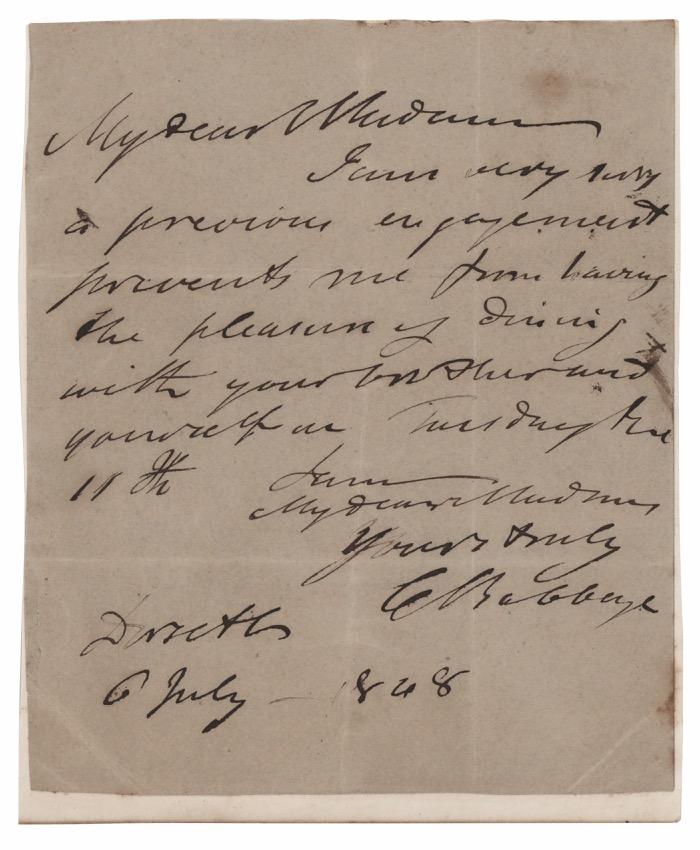 My dear Madam
I am very sorry
a previous engagement
prevents me from having
the pleasure of dining
with your brother and
yourself on Tuesday the
11th
I am
My dear Madam
Yours truly
C Babbage
Dorset St
6 July – 1848